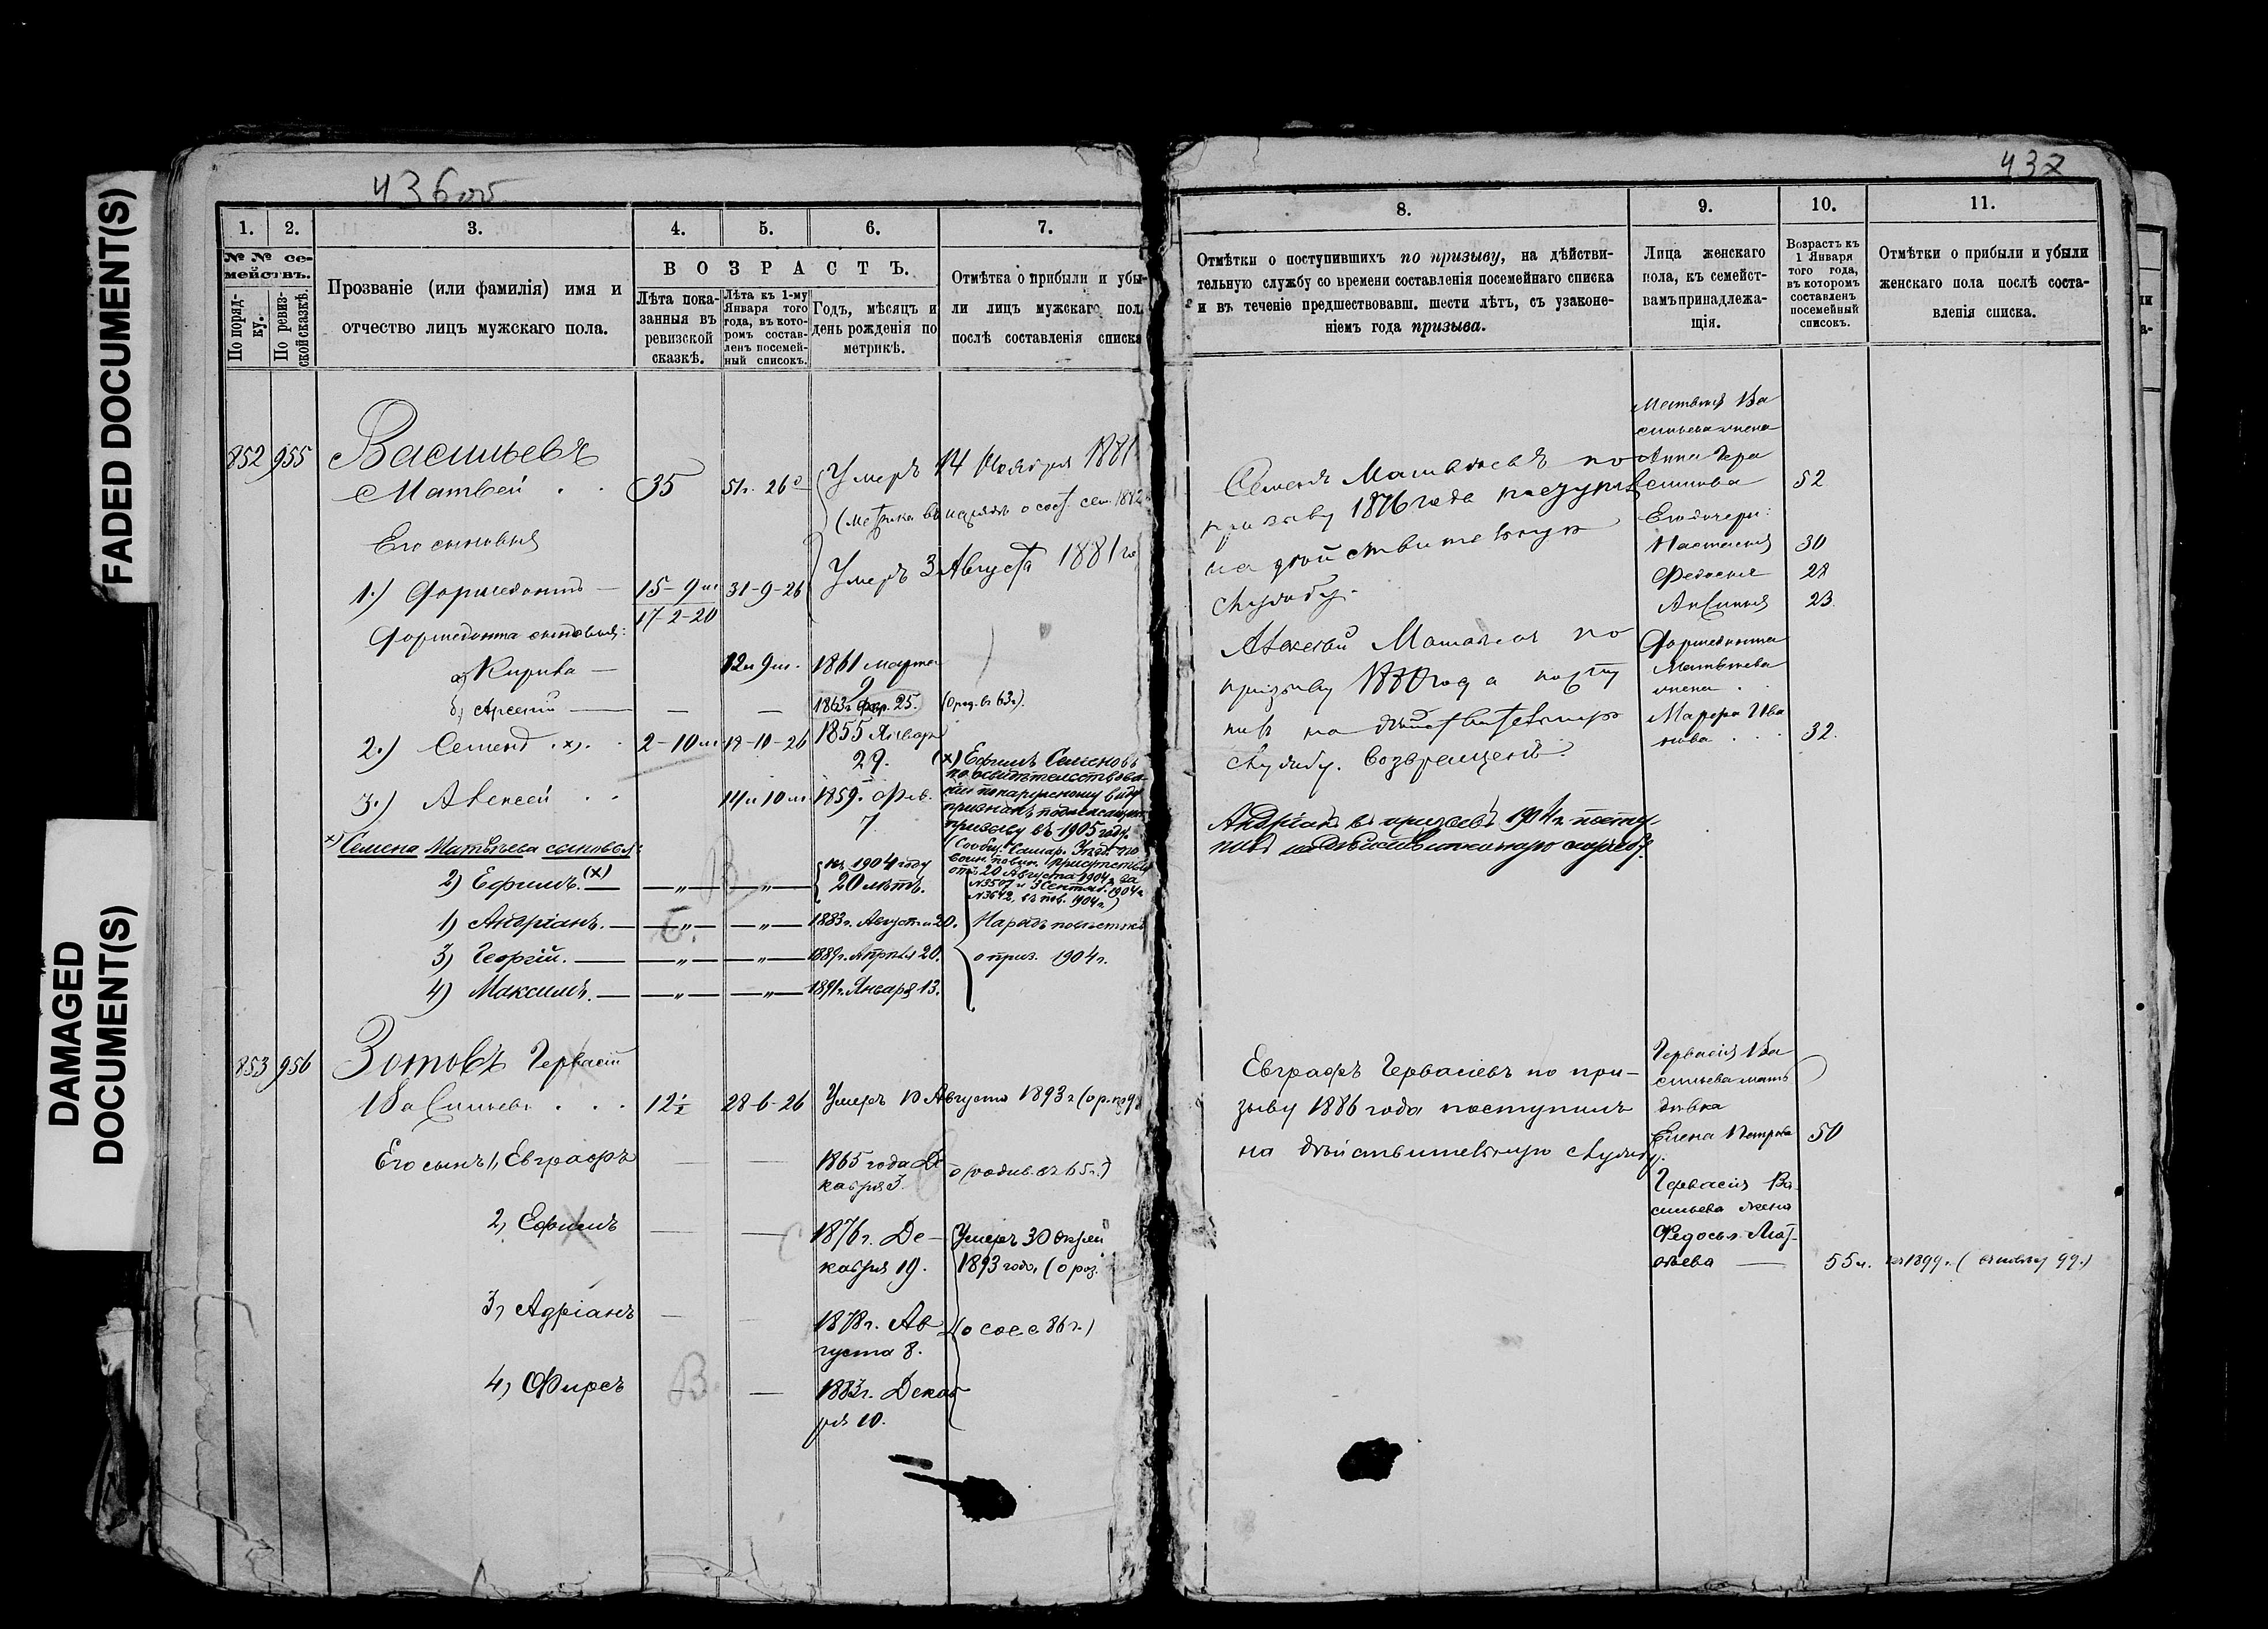 FADED DOCUMENT(S)
DAMAGED
DOCUMENT(S)
436об
1.
2.
3.
4.
5.
6.
7.
№ № се-
мействъ.
По поряд-
ку.
По ревиз-
ской сказкѣ.
Прозваніе (или фамилія) имя и
отчество лицъ мужскаго пола.
ВОЗРАСТЪ.
Лѣта пока-
занныя въ
ревизской
сказкѣ.
Лѣта къ 1-му
Января того
года, въ кото-
ромъ состав-
ленъ посемей-
ный списокъ.
Годъ, мѣсяцъ и
день рожденія по
метрикѣ.
Отмѣтка о прибыли и убы-
ли лицъ мужскаго пола
послѣ составленія списка
852 955 Васильевъ
Матвей 35 51 г. 26 Умеръ 14 Ноября 1881
Его сыновья
1.) 15-9 м 31-9-26 Умеръ 3 Августа 1881 го
17-2-20
сыновья:
а) Кирила — 12 л 9 м. 1861 марта
9
б) Арсеній — — — 1863 г. Фвр. 25. (О род. въ 63 г.).
2.) Семенъ (х). 2-10 м 18-10-26 1855 Январь
29. (х) Ефимъ Семеновъ
по освидѣтельствова-
нію по наружному виду
признанъ подлежащимъ
призыву въ 1905 году.
3.) Алексей 14 л 10 м. 1859. Фев.
7
х) Семена Матвѣева сыновья:
(Сообщ. Самар. Уѣзд. по
воин. повин. присутствія
отъ 20 Августа 1904 г. за
№3507 и 3 Сентяб. 1904 г.
№3642, въ пов. 1904 г.)
2) Ефимъ. (х) — „ — „ — къ 1904 году
20 лѣтъ.
1) Андріанъ. — „ — „ — 1883 г. Августа 20. Нарядъ повѣстокъ
3) Георгій. — „ — „ — 1889 г. Апрѣля 20. о приз. 1904 г.
4) Максимъ. — „ — „ — 1891 г. Января 13.
853 956 Зотовъ Гервасій
Васильевъ 12½ 28-6-26 Умеръ 10 Августа 1893 г (о р.
Его сынъ 1, Евграфъ — — 1865 года Де
кабря 3. о (родив. въ 65 г.)
2, Ефимъ — — 1876 г. Де-
кабря 19. Умеръ 30
1893 года, (о роз.
3, Адріанъ — — 1878 г. Ав
густа 8. (о сос. с 86 г.)
4, Фирсъ В. — 1883 г. Декаб
ря 10.
437
8.
9.
10.
11.
Отмѣтки о поступившихъ по призыву, на дѣйстви-
тельную службу со времени составленія посемейнаго списка
и въ теченіе предшествовавш. шести лѣтъ, съ узаконе-
ніемъ года призыва.
Лица женскаго
пола, къ семейст-
вамъ принадлежа-
щія.
Возрастъ къ
1 Января
того года,
въ которомъ
составленъ
посемейный
списокъ.
Отмѣтки о прибыли и убыли
женскаго пола послѣ соста-
вленія списка.
Семенъ Матвѣевъ по
призыву 1876 года поступ
на дѣйствительную
службу.
Алексѣй Матвѣевъ по
призыву 1880 года посту
пилъ на дѣйствительную
службу. Возвращенъ.
Андріанъ въ призывъ 1904 г. посту-
пилъ на дѣйствительную службу.
Матвѣя Ва
сильева жена
Анна Гера
симова 52
Его дочери:
Настасья 30
Федосья 28
Аксинья 23
Матвѣева
жена
Марфа Ива
нова 32.
Евграфъ Гервасіевъ по при-
зыву 1886 года поступилъ
на дѣйствительную службу.
Гервасія Ва
сильева мать
вдовка
Елена Петрова 50
Гервасія Ва-
сильева жена
Федосья Мат-
вѣева — 55 л. къ 1899 г. (